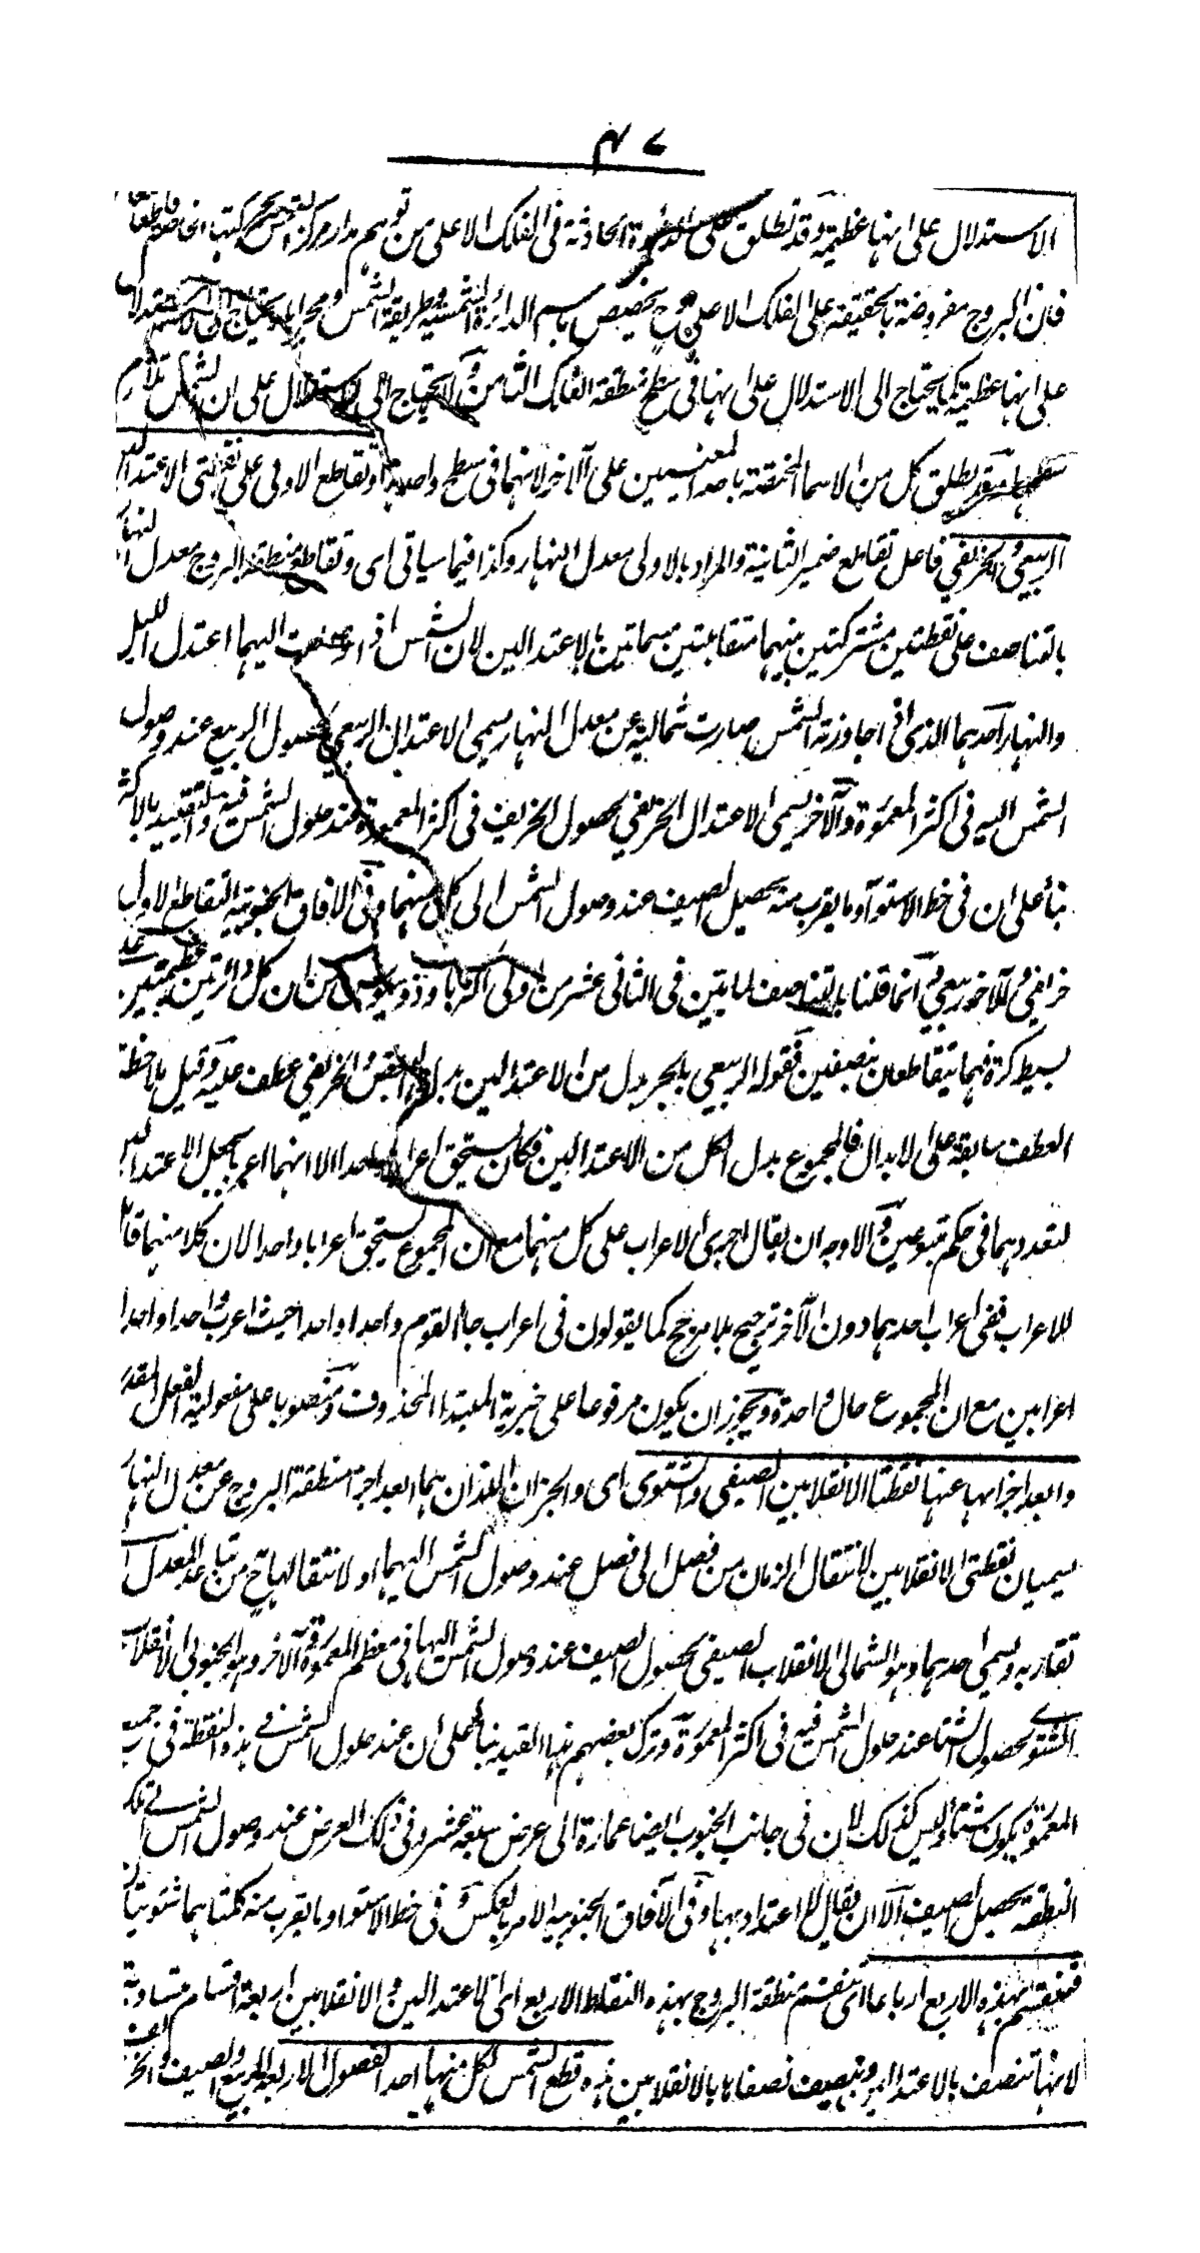 ۴۷
الاستدلال على انها عظيمة وقد تطلق على الدائرة الحادثة في الفلك الاعلى من توهم مدار مركز الشمس
فان البروج مفروضة بالحقيقة على الفلك الاعلى وح تخصيص باسم الدائرة الشمسية وطريقة الشمس ومجراها ويحتاج الى الاستدلال
على انها عظيمة كما يحتاج الى الاستدلال على انها في سطح منطقة الفلك الثامن ولا يحتاج الى الاستدلال على ان الشمس تلازم
سطحها فقد يطلق كل من الاسماء المختصة باحد المعنيين على الآخر لانهما في سطح واحد وتقاطع الاولى على نقطتى الاعتدالين
الربيعي والخريفي فاعل تقاطع ضمير الثانية والمراد بالاولى معدل النهار وكذا فيما سياتى اى وتقاطع منطقة البروج معدل النهار
بالتناصف على نقطتين مشتركتين بينهما متقابلتين مسماتين بالاعتدالين لان الشمس اذا وصلت اليهما اعتدل الليل
والنهار احدهما الذى اذا جاوزته الشمس صارت شمالية عن معدل النهار يسمى الاعتدال الربيعي لحصول الربيع عند وصول
الشمس اليه في اكثر المعمورة والآخر يسمى الاعتدال الخريفي لحصول الخريف في اكثر المعمورة عند حلول الشمس فيه والتقييد بالاكثر
بناء على ان في خط الاستواء وما يقرب منه يحصل الصيف عند وصول الشمس الى كل منهما وفي الآفاق الجنوبية التقاطع الاول
خريفي والآخر ربيعي وانما قلنا بالتناصف لما تبين في الثانى عشر من اولى اكرثاوذوسيوس من ان كل دائرتين عظيمتين على
بسيط كرة فهما يتقاطعان بنصفين فقوله الربيعي بالجر بدل من الاعتدالين بدل البعض والخريفي عطف عليه وقيل ملاحظة
العطف سابقة على الابدال فالمجموع بدل الكل من الاعتدالين فكان يستحق اعرابا واحدا الا انهما اعربا بجعل الاعتدالين
لتعددهما في حكم متبوعين والاوجه ان يقال اجرى الاعراب على كل منهما مع ان المجموع يستحق اعرابا واحدا لان كلا منهما قابل
للاعراب ففي اعراب احدهما دون الآخر ترجيح بلا مرجح كما يقولون في اعراب جاء القوم واحدا واحدا حيث اعرب واحدا واحدا
اعرابين مع ان المجموع حال واحدة ويجوز ان يكون مرفوعا على خبرية المبتدا المحذوف ومنصوبا على مفعولية الفعل المقدر
وابعد اجزائها عنها نقطتا الانقلابين الصيفي والشتوى اى والجزءان اللذان هما ابعد اجزاء منطقة البروج عن معدل النهار
يسميان نقطتى الانقلابين لانتقال الزمان من فصل الى فصل عند وصول الشمس اليهما او لانتقالها ح من تباعد المعدل الى
تقاربه ويسمى احدهما وهو الشمالى الانقلاب الصيفي لحصول الصيف عند وصول الشمس اليها في معظم المعمورة والآخر وهو الجنوبى الانقلاب
الشتوى لحصول الشتاء عند حلول الشمس فيه في اكثر المعمورة وترك بعضهم هذا القيد بناء على ان عند حلول الشمس في هذه النقطة في جميع
المعمورة يكون شتاء وليس كذلك لان في جانب الجنوب ايضا عمارة الى عرض سبعة عشر وفي ذلك العرض عند وصول الشمس الى تلك
النقطة يحصل الصيف الا ان يقال لا اعتداد بها وفي الآفاق الجنوبية الامر بالعكس وفي خط الاستواء وما يقرب منه كلتاهما شتويتان
فتنقسم بهذه الاربع ارباعا اى تنقسم منطقة البروج بهذه النقاط الاربع اى الاعتدالين والانقلابين اربعة اقسام متساوية
لانها تنصف بالاعتدالين وينصف نصفاها بالانقلابين مدة قطع الشمس لكل منها احد الفصول الاربعة الربيع والصيف والخريف